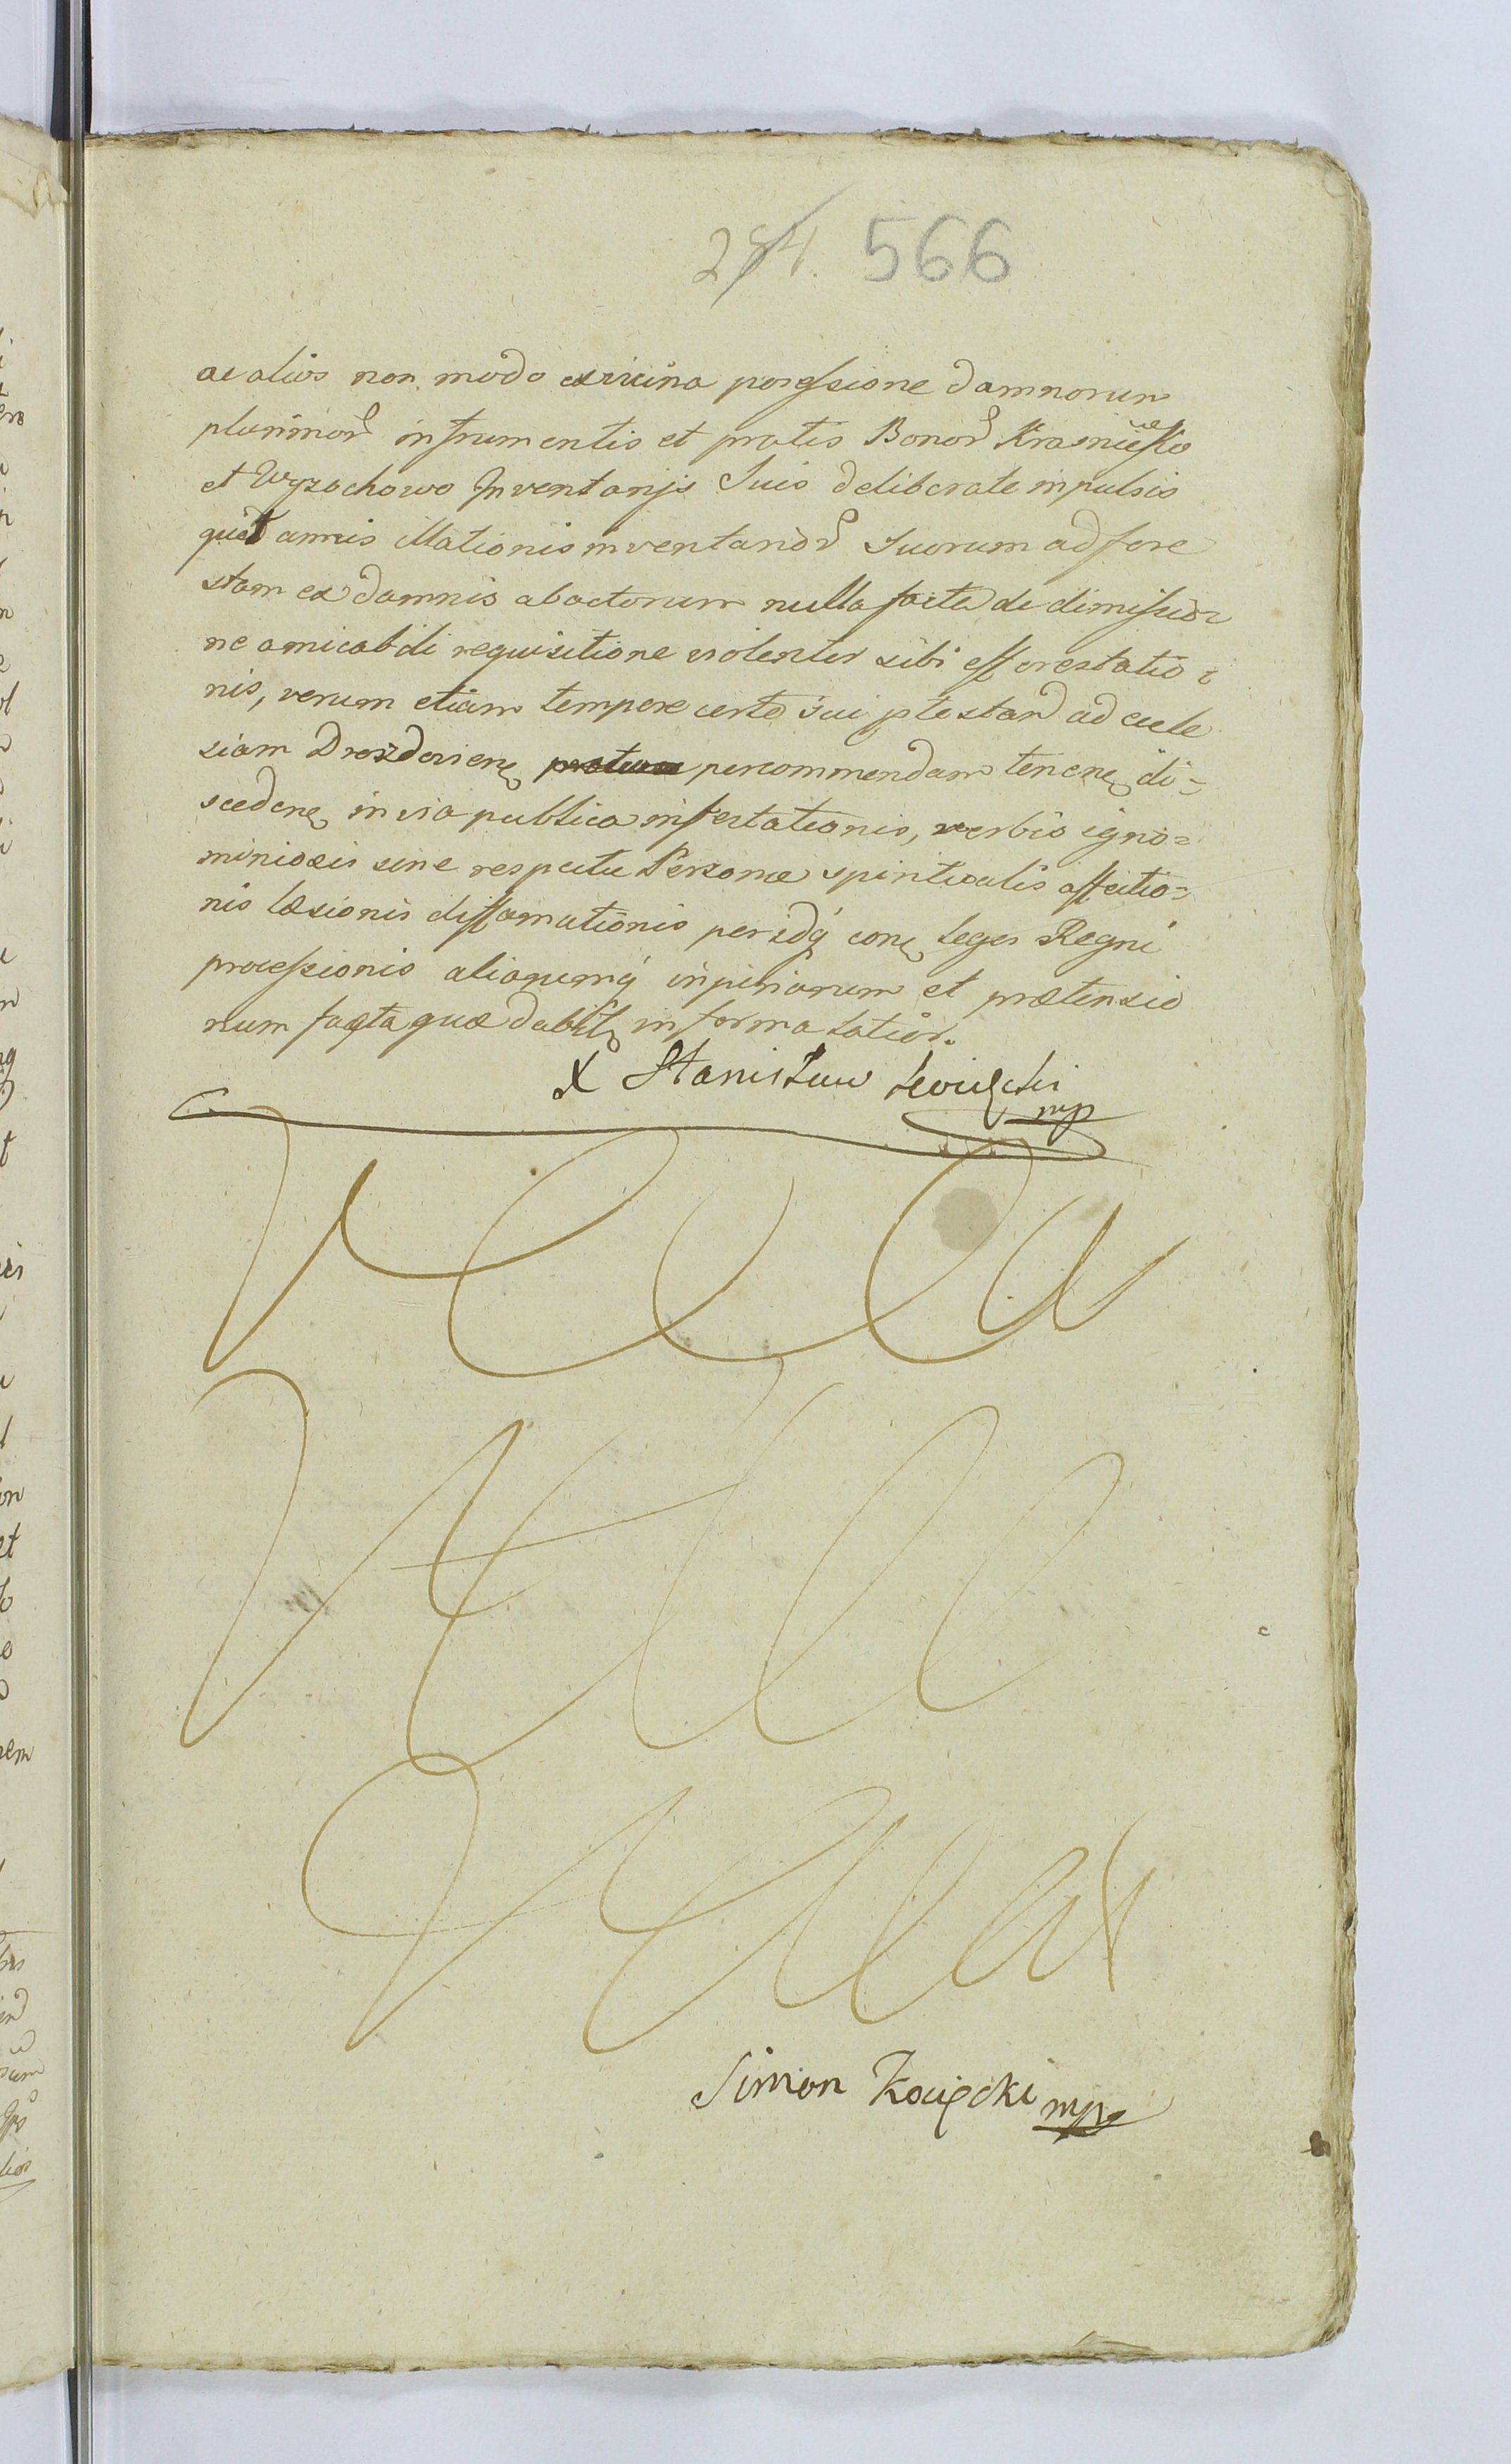 284. 566
ac alios non modo ex vicina possessione damnorum
plurimor in frumentis et pratis Bonor Krasnie
et Wyzochowo Inventarijs Suis deliberate impulsis
quot annis illationis inventarior Suorum ad fore
stam ex damnis abactorum nulla facta de dimissio
ne amicabili requisitione violenter sibi efforestatio
nis, verum etiam tempore certo sui ptestan ad eccle
siam Drozdovien percommendam tenen di=
sceden in via publica infestationis, verbis igno=
miniosis sine respectu Personæ spiritualis affectio=
nis læsionis diffamationis per idq con Leges Regni
processionis aliarumq injuriarum et prætensio
num facta quæ dabit in forma latior.
X Stanisław Kocięcki
mp
Simon Kocięcki mp